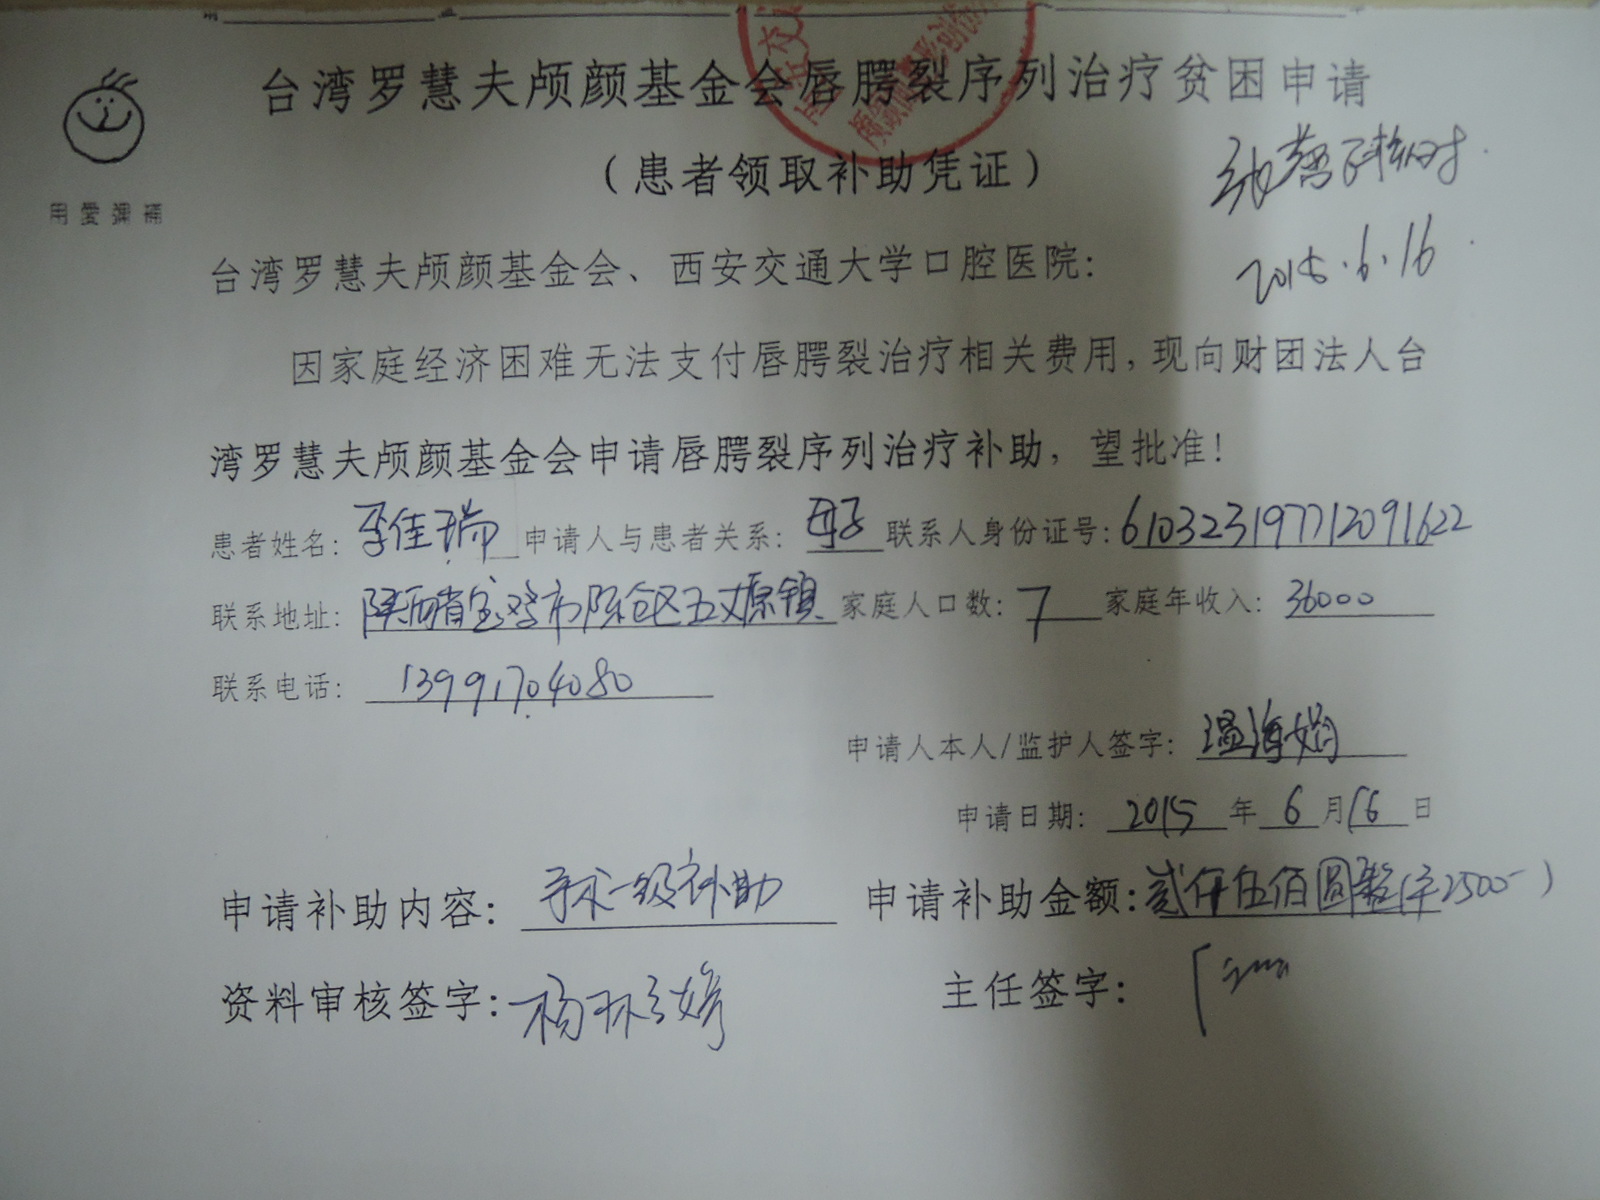 用愛彌補
台湾罗慧夫颅颜基金会唇腭裂序列治疗贫困申请
（患者领取补助凭证）
2015.6.16
台湾罗慧夫颅颜基金会、西安交通大学口腔医院：
因家庭经济困难无法支付唇腭裂治疗相关费用，现向财团法人台
湾罗慧夫颅颜基金会申请唇腭裂序列治疗补助，望批准！
患者姓名：李佳瑞 申请人与患者关系：母子 联系人身份证号：610323197712091622
联系地址：陕西省宝鸡市陈仓区五丈原镇 家庭人口数：7 家庭年收入：36000
联系电话：13991704080
申请人本人/监护人签字：温海娟
申请日期：2015年6月16日
申请补助内容：手术一级补助 申请补助金额：贰仟伍佰圆整（¥2500-）
资料审核签字：杨 主任签字：